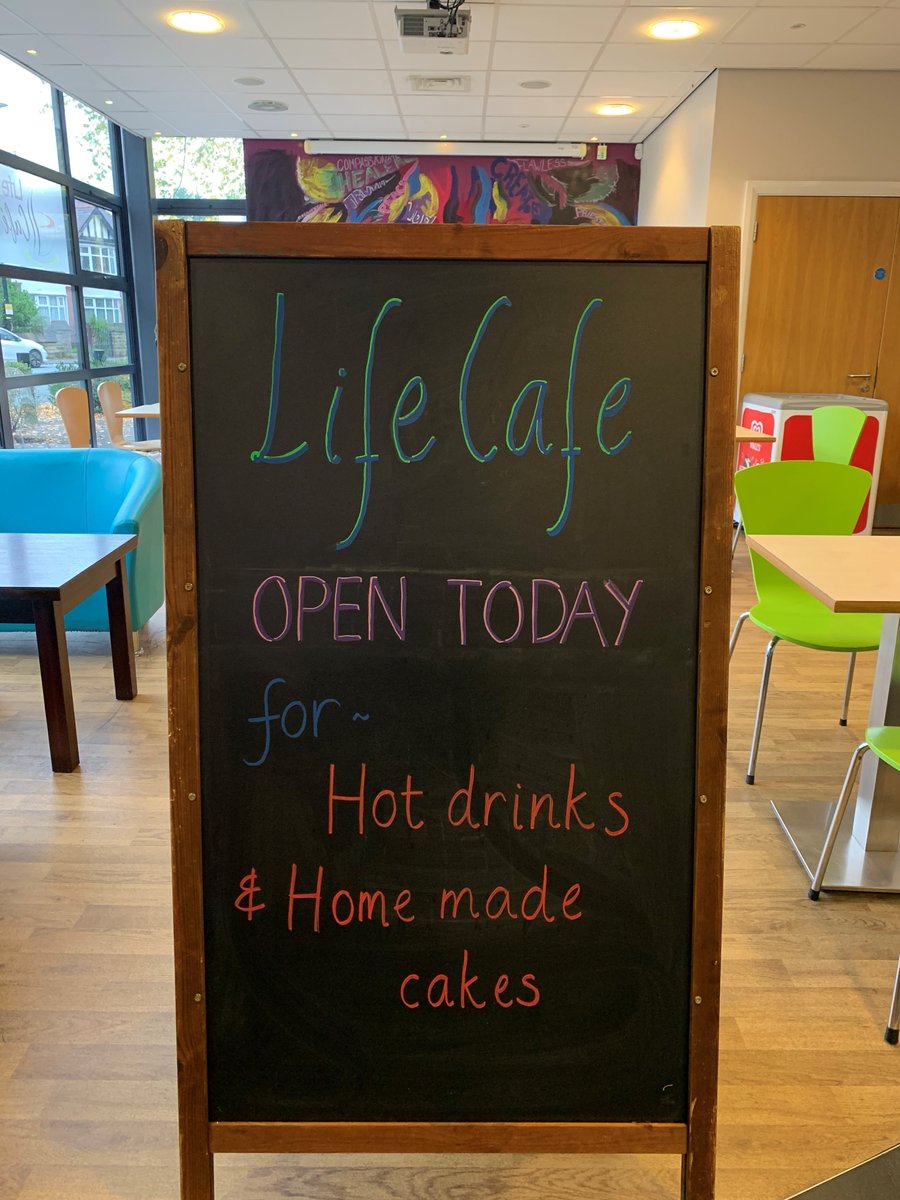 COMPASSION
HEALER
FLAWLESS
Life
Life Cafe
OPEN TODAY
for ~
Hot drinks
& Home made
cakes